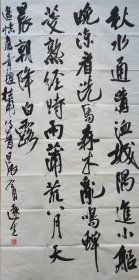 秋水通溝洫城隅進小船
晚涼看洗馬森木亂鳴蟬
菱熟經時雨蒲荒八月天
晨朝降白露
遙憶舊青氈